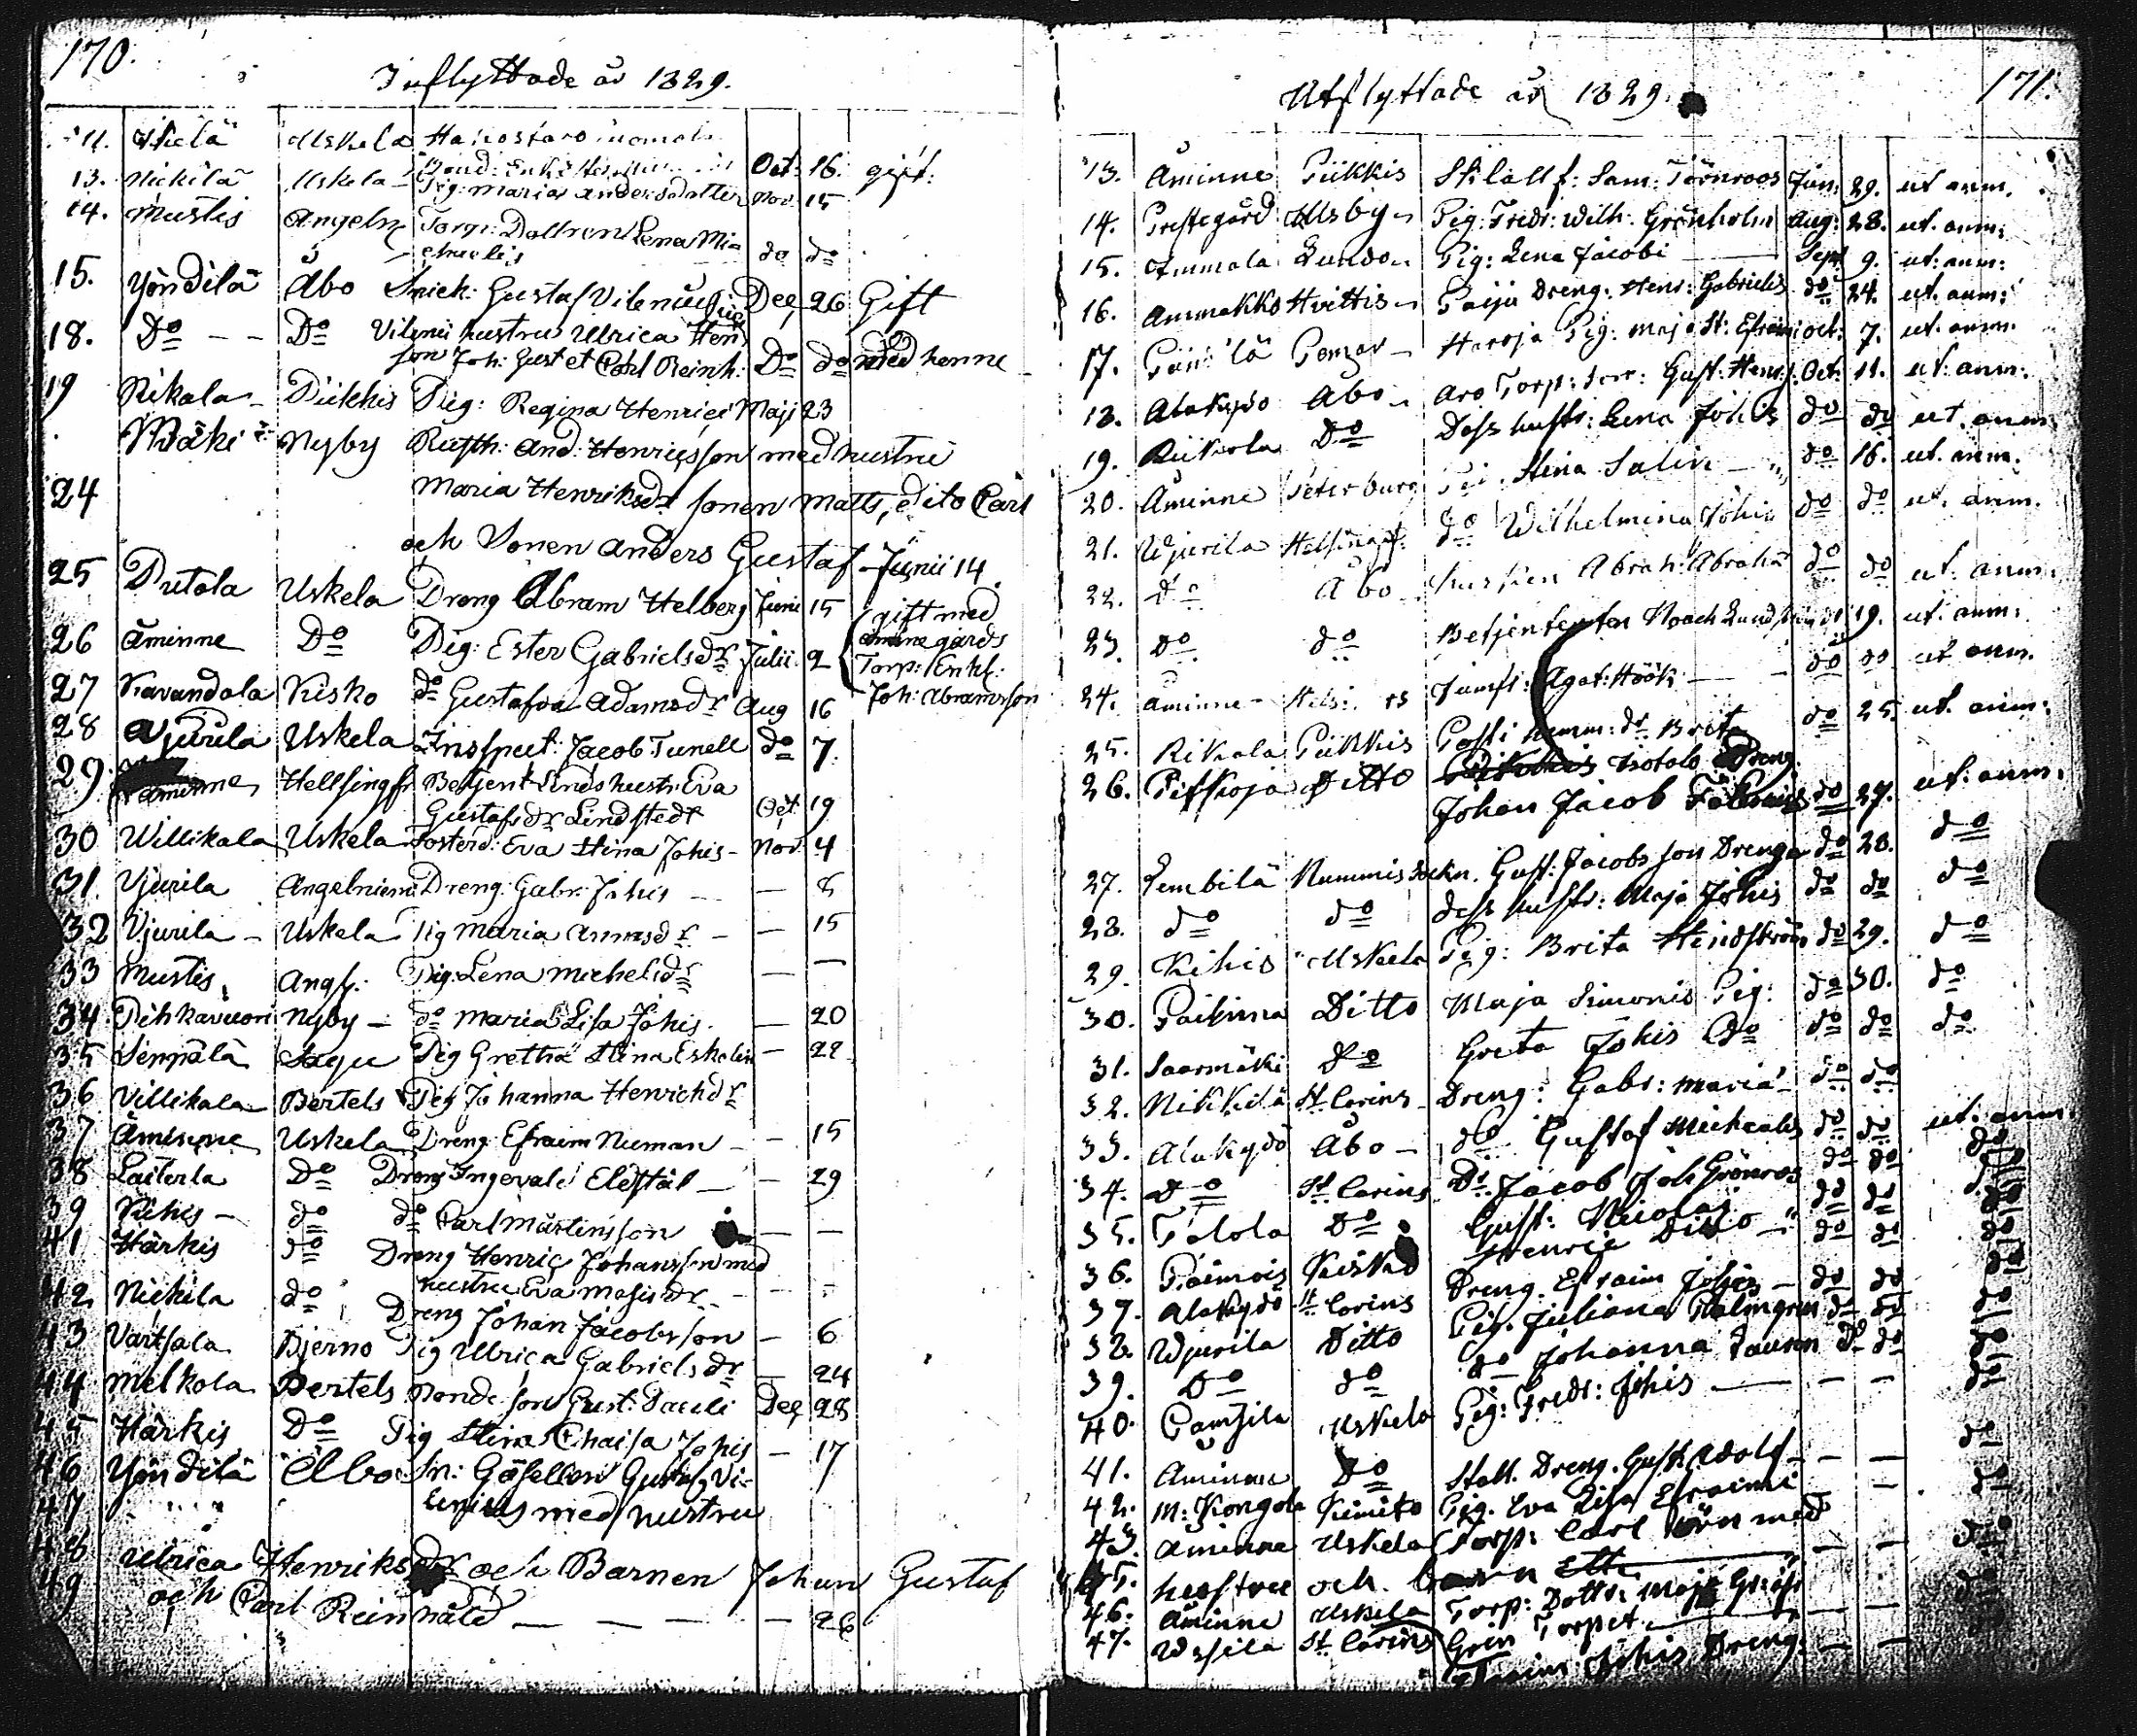 170.
Inflyttade år 1829.
11. Uskela
13. Nickilä Uskela Oct: 16. gift:
Pig: Maria Andersdotter Nov. 15
14. Mustis Angeln Torp: Dottren Lena Mi=
chaelis do do
15. Yöndilä Åbo Snick: Gustaf Vilenius Dec 26 Gift
18. Do - - Do Vilenii hustru Ulrica Henr
son Joh: Gust et Carl Reinh: Do do med henne
19 Rikala Piikkis Pig: Regina Henrici Maji 23
Mäki Nyby Rusth: And: Henricsson med hustru
24 Maria Henriksdr sonen Matts, dito Carl
och Sonen Anders Gustaf - Junii 14.
25 Putola Uskela Dreng Abram Helberg Junii 15 gift med
26 Åminne Do Pig: Ester Gabrielsdr Julii. 2 Åminne gårds
Torp: Enkl:
27 Kavandola Kisko do Gustafva Adamsdr Aug 16 Joh: Abramsson
28 Vjurila Uskela Inspect: Jacob Tunell do 7.
29. Åminne Hellsingfr Betjent Linds hustr: Eva
Gustafsdr Lindstedt Oct 19
30 Willikala Uskela Fosterd: Eva Stina Johis - Nov. 4
31. Vjurila Angelniemi Dreng: Gabr: Johis — 8
32 Vjurila - Uskela Pig Maria Annasdr - — 15
33 Mustis Angl: Pig: Lena Michelsdr — —
34. Pihkavuori Nyby - do Maria Lisa Johis. — 20
35 Sempälä Sagu Pig Gretha Stina Eskolin — 22
36 Villikala Bertels Pig Johanna Henrichdr
37 Åminne Uskela Dreng Efraim Numan - — 15
38 Laiterla Do Dreng Ingevald Elestäl — — 29
39 Kihis - do do Carl Mårtinsson — —
41 Härkis do Dreng Henric Johansson med
hustru Eva Matsdr - — -
42 Nickila do Dreng Johan Jacobsson — 6
43 Vartsala Bjerno Pig Ulrica Gabrielsdr — 24
44 Melkola Bertels Bonde son Gust: Pauli Dec 28
45 Härkis Do Pig Stina Chaisa Johis — 17
46 Yöndilä Åbo Sn: Gesellen Gustaf Vi=
47 lenius med hustru
48 Ulrica Henriksdr och Barnen Johan Gustaf
49 och Carl Reinhåld — — — — 26
171.
Utflyttade år 1829.
13. Åminne Piikkis Stilallf: Sam: Törnroos Jun: 29. ut anm.
14. Prestegård Usby Pig: Fredr: Wilh: Grönholm Aug: 28. ut. anm:
15. Ammala Lundo Pig: Lena Jacobi — Sept 9. ut: anm:
16. Ammakko Hvittis Paiju Dreng: Henr: Gabrielis do 24. ut. anm:
17. Pemar - Haroja Pig: Maja St: Efraimi oct: 7. ut. anm.
18. Alakydö Åbo Aro Torp: son: Gust: Henr: Oct: 11. ut: anm.
19. Riikola Do Dess hustr: Lena Johis do do ut. anm.
20. Åminne Peterburg Pig. Stina Salin — do 16. ut. anm.
21. Wjurila Helsingf: do Wilhelmina Johis do do ut. anm.
22. do Åbo Abrah: Abraha do do ut: anm.
23. do do Betjenten Noach Lundström do 19. ut. anm:
24. Åminne Jumfr: Agat: Höök — do do ut anm.
25. Rikala Piikkis Brita do 25. ut. anm:
26. Ditto Isotalo Dreng
Johan Jacob do 27. ut. anm.
27. Tembilä Nummis Sockn. Gust: Jacobsson Dreng do 28. do
28. do do dess hustr: Maja Johis do do do
29. Kihis Uskela Pig: Brita Lindström do 29. do
30. Ditto Maja Simonis Pig: do 30. do
31. Saarmäki do Greta Johis do do do do
32. Nikkilä St Carins Dreng: Gabr: Maria do do
33. Alakydö Åbo - do Gustaf Michaelis do do ut. anm.
34. Do St Carins Dr. Jacob Joh Grönroos do do do
35. Talola Do Gust: Nicolai do do
Henric Ditto do do do
36. Kisko Dreng. Efraim Johis - do do do
37. Alakydö St Carins Pig. Juliana Palmgren do do do
38. Wjurila Ditto do Johanna do do do
39. Do do Pig: Fredr: Johis — — — do
40. Uskela
41. Åminne Do Stall. Dreng. Gust: Adolf - — — do
42. M: Kongola Kimito Pig. Eva Lisa Efraimi — do
43. Åminne Uskela Torp: Carl med
45. hustru och barn Ett — — — do
46. Åminne Uskela Torp: Dottr: Maja
Torpet — — —
47. St Carins Johis Dreng. — —